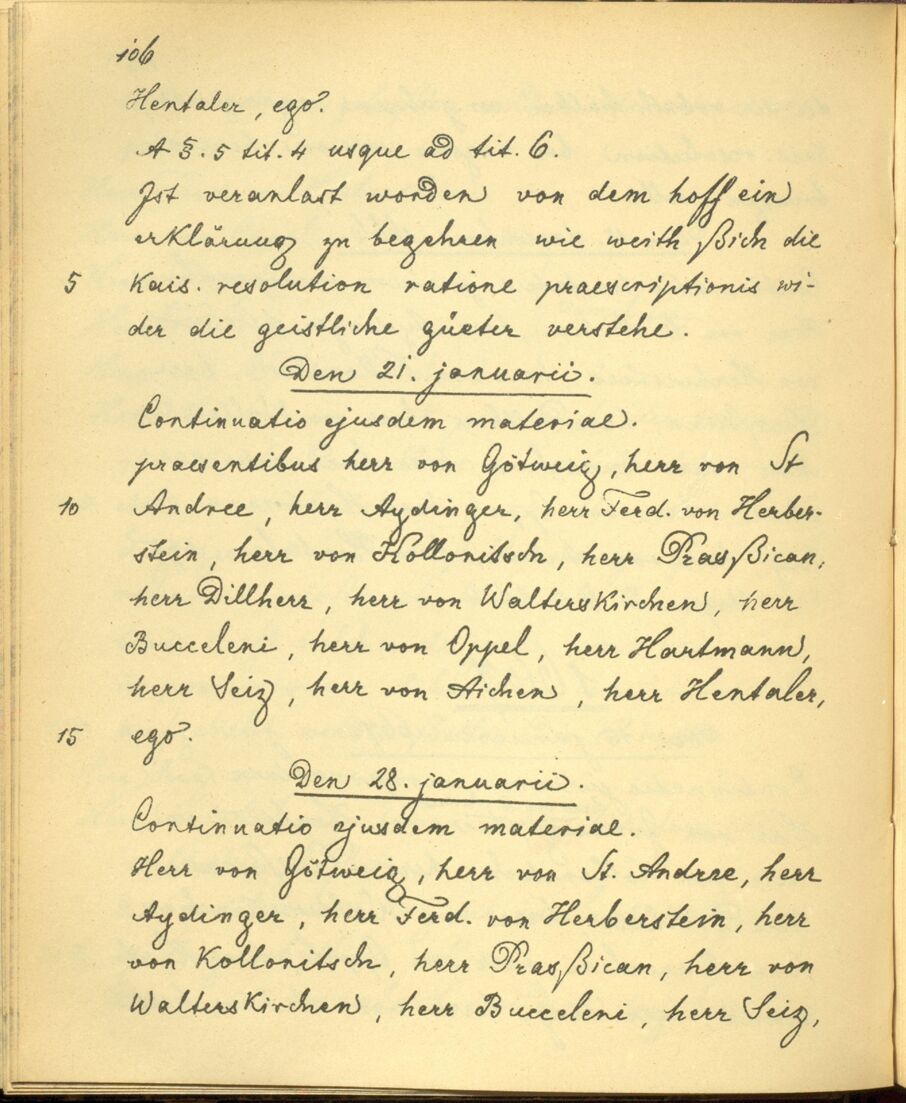 106
Hentaler, ego.
A §. 5 tit. 4 usque ad tit. 6.
Ist veranlast worden von dem hoff ein
erklärung zu begehren wie weith ßich die
5 kais. resolution ratione praescriptionis wi-
der die geistliche güeter verstehe.
Den 21. januarii.
Continuatio ejusdem materiae.
praesentibus herr von Götweig, herr von St
10 Andree, herr Aydinger, herr Ferd. von Herber-
stein, herr von Kollonitsch, herr Prasßican,
herr Dillherr, herr von Walterskirchen, herr
Bucceleni, herr von Oppel, herr Hartmann,
herr Seiz, herr von Aichen, herr Hentaler,
15 ego.
Den 28. januarii.
Continuatio ejusdem materiae.
Herr von Götweig, herr von St. Andree, herr
Aydinger, herr Ferd. von Herberstein, herr
von Kollonitsch, herr Prasßican, herr von
Walterskirchen, herr Bucceleni, herr Seiz,